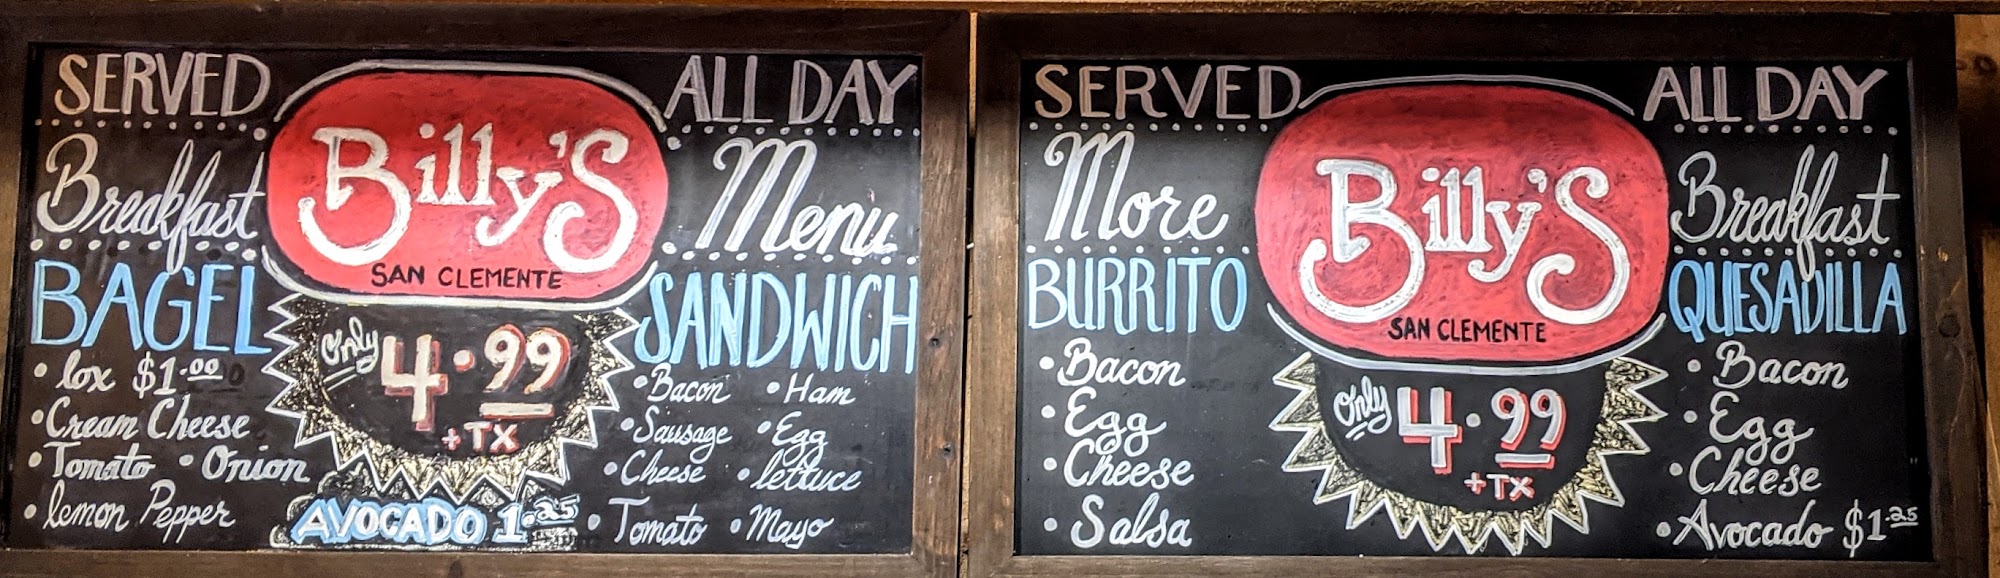 SERVED
Breakfast
BAGEL
• lox $1.00
• Cream Cheese
• Tomato • Onion
• lemon Pepper
Billy's
SAN CLEMENTE
Only 4.99
+ TX
AVOCADO 1.25
ALL DAY
Menu
SANDWICH
• Bacon • Ham
• Sausage • Egg
• Cheese • lettuce
• Tomato • Mayo
SERVED
More
BURRITO
• Bacon
• Egg
• Cheese
• Salsa
Billy's
SAN CLEMENTE
Only 4.99
+ TX
ALL DAY
Breakfast
QUESADILLA
• Bacon
• Egg
• Cheese
• Avocado $1.25